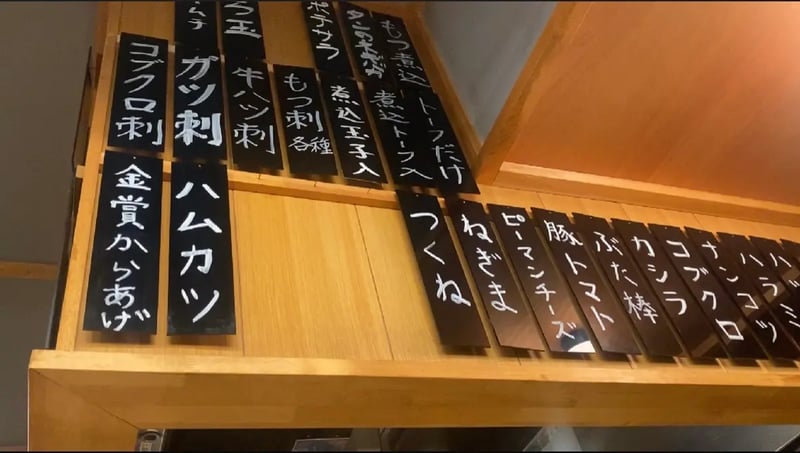 もつ煮込
ポテサラ
トーフだけ
煮込トーフ入
煮込玉子入
もつ刺 各種
牛ハツ刺
ガツ刺
コブクロ刺
ハムカツ
金賞からあげ
つくね
ねぎま
ピーマンチーズ
豚トマト
ぶた棒
カシラ
コブクロ
ナンコツ
ハラミ